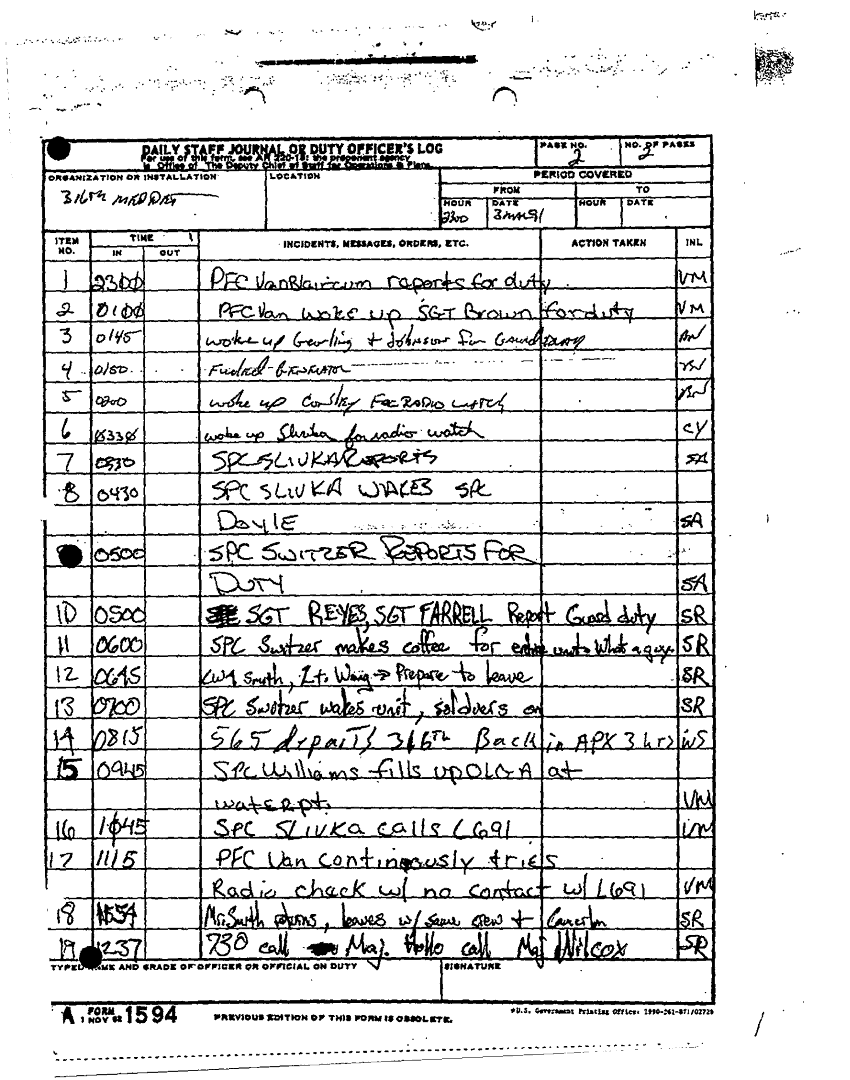 DAILY STAFF JOURNAL OR DUTY OFFICER'S LOG
For use of this form, see AR 220-15; the proponent agency
is Office of The Deputy Chief of Staff for Operations & Plans.
PAGE NO.
2
NO. OF PAGES
2
ORGANIZATION OR INSTALLATION
316TH
LOCATION
PERIOD COVERED
FROM
TO
HOUR
2300
DATE
3 MAR 91
HOUR
DATE
ITEM NO.
TIME
IN
OUT
INCIDENTS, MESSAGES, ORDERS, ETC.
ACTION TAKEN
INL
1 2300 PFC VanBlaircum reports for duty VM
2 0100 PFC Van woke up SGT Brown for duty VM
3 0145 woke up + Johnson for Guard Duty BN
4 0150 Fueled Generator BN
5 0200 woke up For RADIO WATCH BN
6 0330 woke up Slivka for radio watch CY
7 0330 SPC SLIVKA REPORTS SA
8 0430 SPC SLIVKA WAKES SPC
DOYLE SA
0500 SPC SWITZER REPORTS FOR
DUTY SA
10 0500 SGT REYES, SGT FARRELL Report Guard duty SR
11 0600 SPC Switzer makes coffee for entire unit. What a guy. SR
12 0645 CW4 Smith, Lt. → Prepare to leave SR
13 0700 SPC Switzer wakes unit, soldiers on SR
14 0815 565 departs 316TH Back in APX 3 hrs WS
15 0945 SPC Williams fills up at
water pt. VM
16 1045 SPC SLIVKA calls L691 VM
17 1115 PFC Van continously tries
Radio check w/ no contact w/ L691 VM
18 Mr. Smith returns, leaves w/ same crew + SR
19 1237 730 call Maj. call Maj Wilcox SR
TYPED NAME AND GRADE OF OFFICER OR OFFICIAL ON DUTY
SIGNATURE
A FORM 1 NOV 62 1594
PREVIOUS EDITION OF THIS FORM IS OBSOLETE.
*U.S. Government Printing Office: 1990-261-871/02729